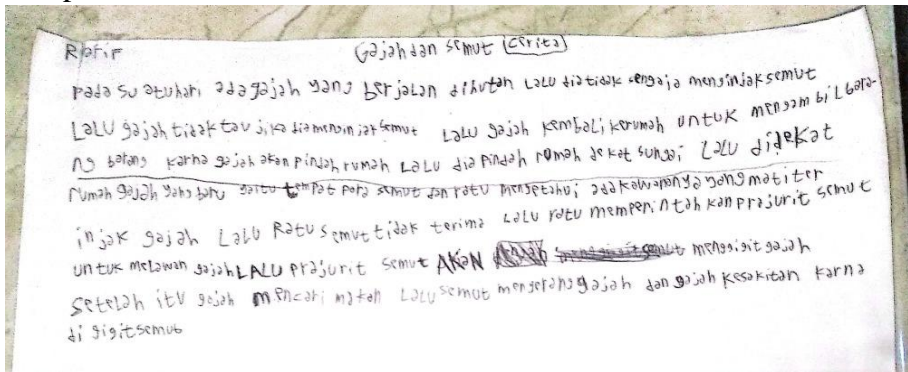 Rafif Gajah dan semut (cerita)
Pada su atuhari ada gajah yang berjalan dihutan Lalu dia tidak sengaja menginjak semut
Lalu gajah tidak tau jika dia menginjak semut Lalu gajah kembali kerumah untuk mengam bil bara-
ng barang karna gajah akan pindah rumah Lalu dia pindah rumah dekat sungai Lalu didekat
rumah gajah yang baru yaitu tempat para semut dan ratu mengetahui ada kawannya yang mati ter
injak gajah Lalu Ratu semut tidak terima Lalu ratu memperintah kan prajurit semut
untuk melawan gajah LALU prajurit semut AKAN menggigit gajah
setelah itu gajah mencari makan Lalu semut mengerang gajah dan gajah kesakitan karna
di gigit semut